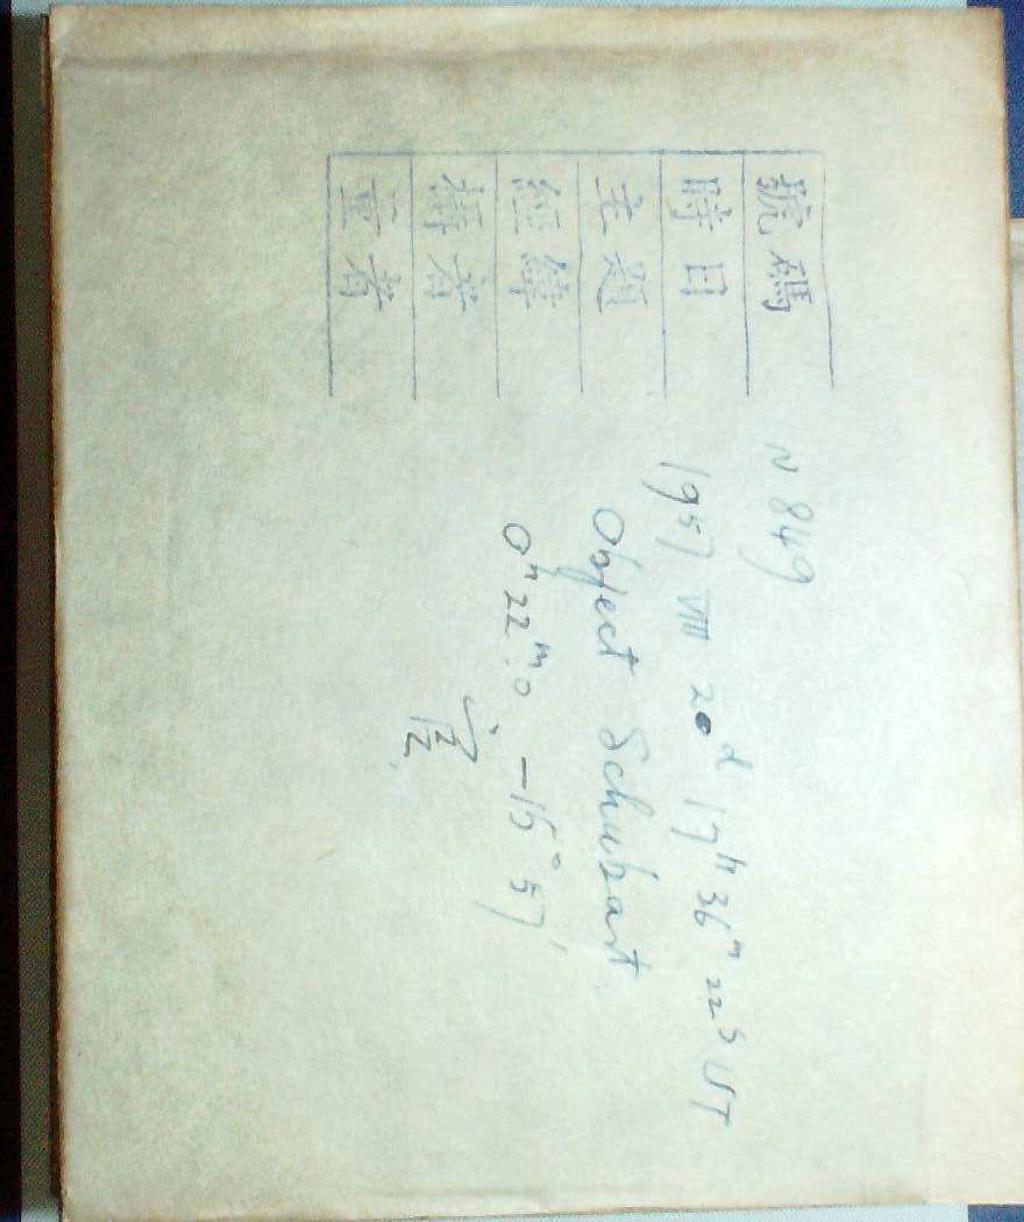 號碼 N 849
時日 1957 VIII 20ᵈ 17ʰ 36ᵐ 22ˢ UT
主題 Object Schubart
經緯 0ʰ 22ᵐ.0 −15° 57′
者
量者